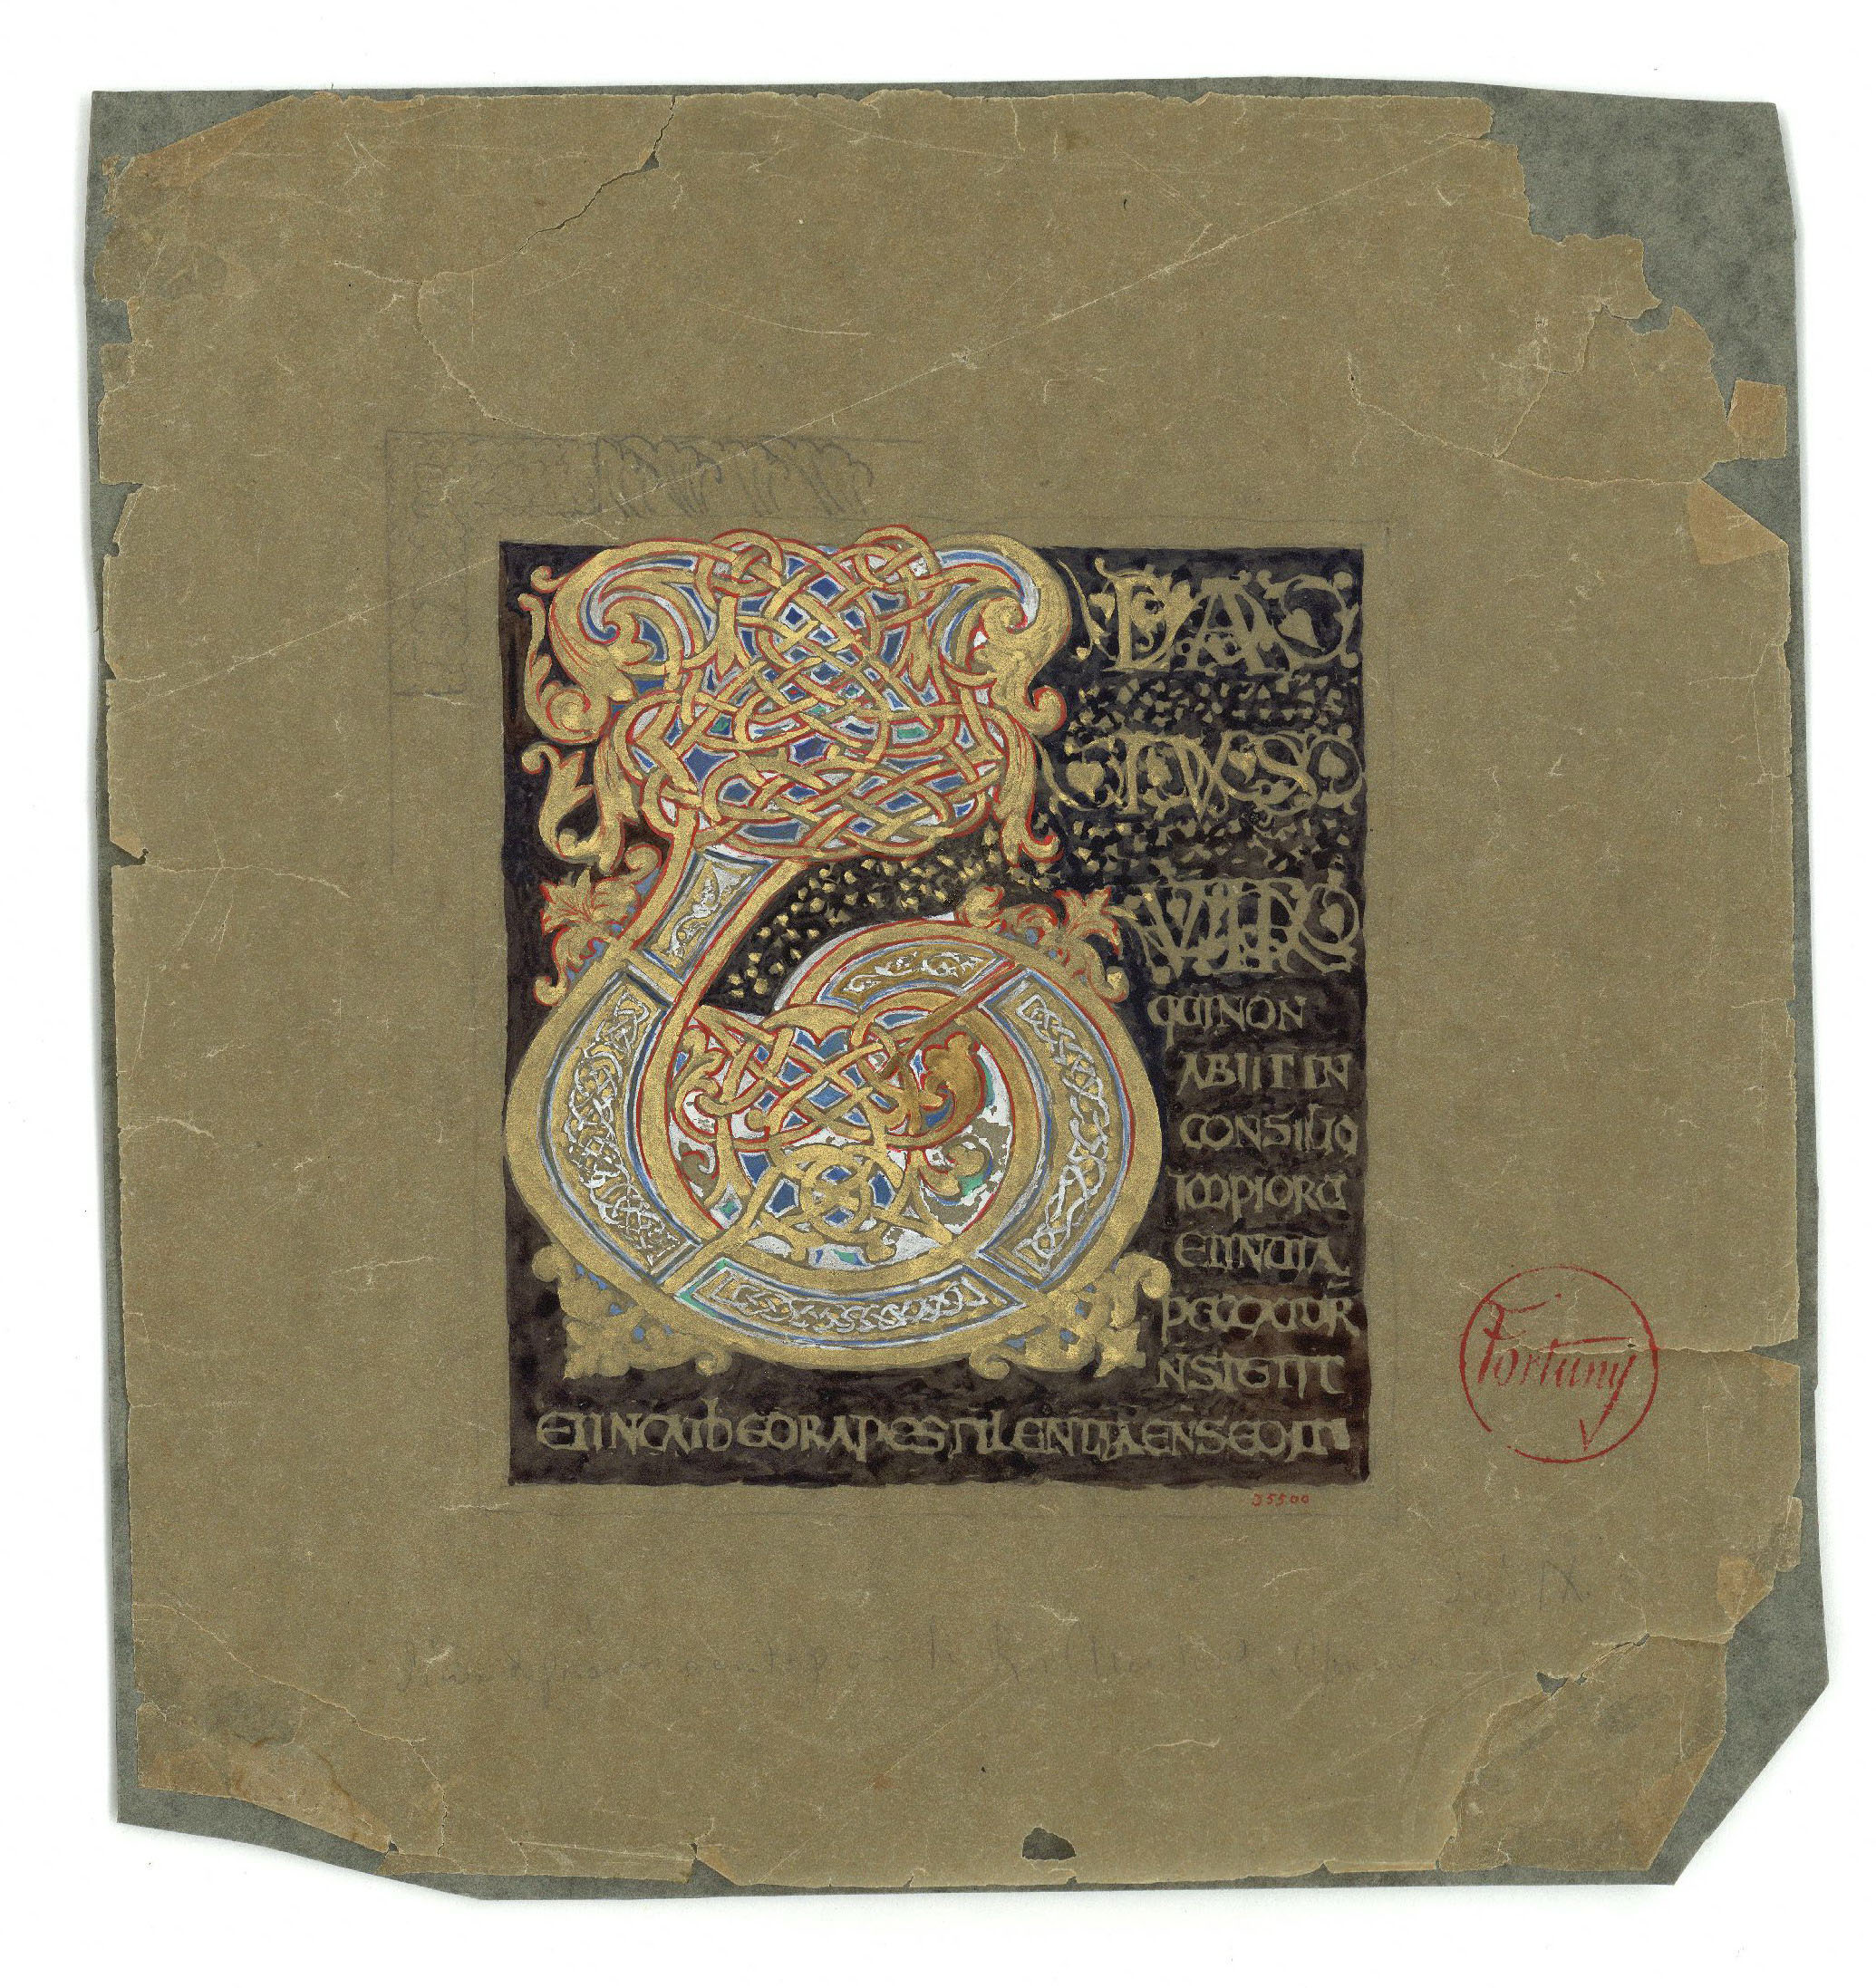 BEA
TVS
VIR
QUI NON
ABIIT IN
CONSILIO
IMPIORU
ET IN VIA
PECCATOR
N STETIT
ET IN CATHEDRA PESTILENTIAE N SEDIT
35500
Fortuny
IX